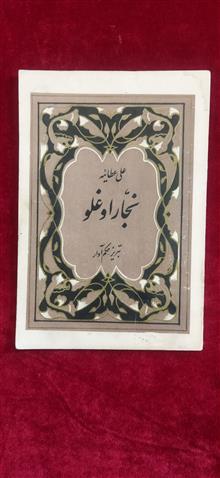 علی عطائیه
نجار اوغلو
تبریز محکم آوار